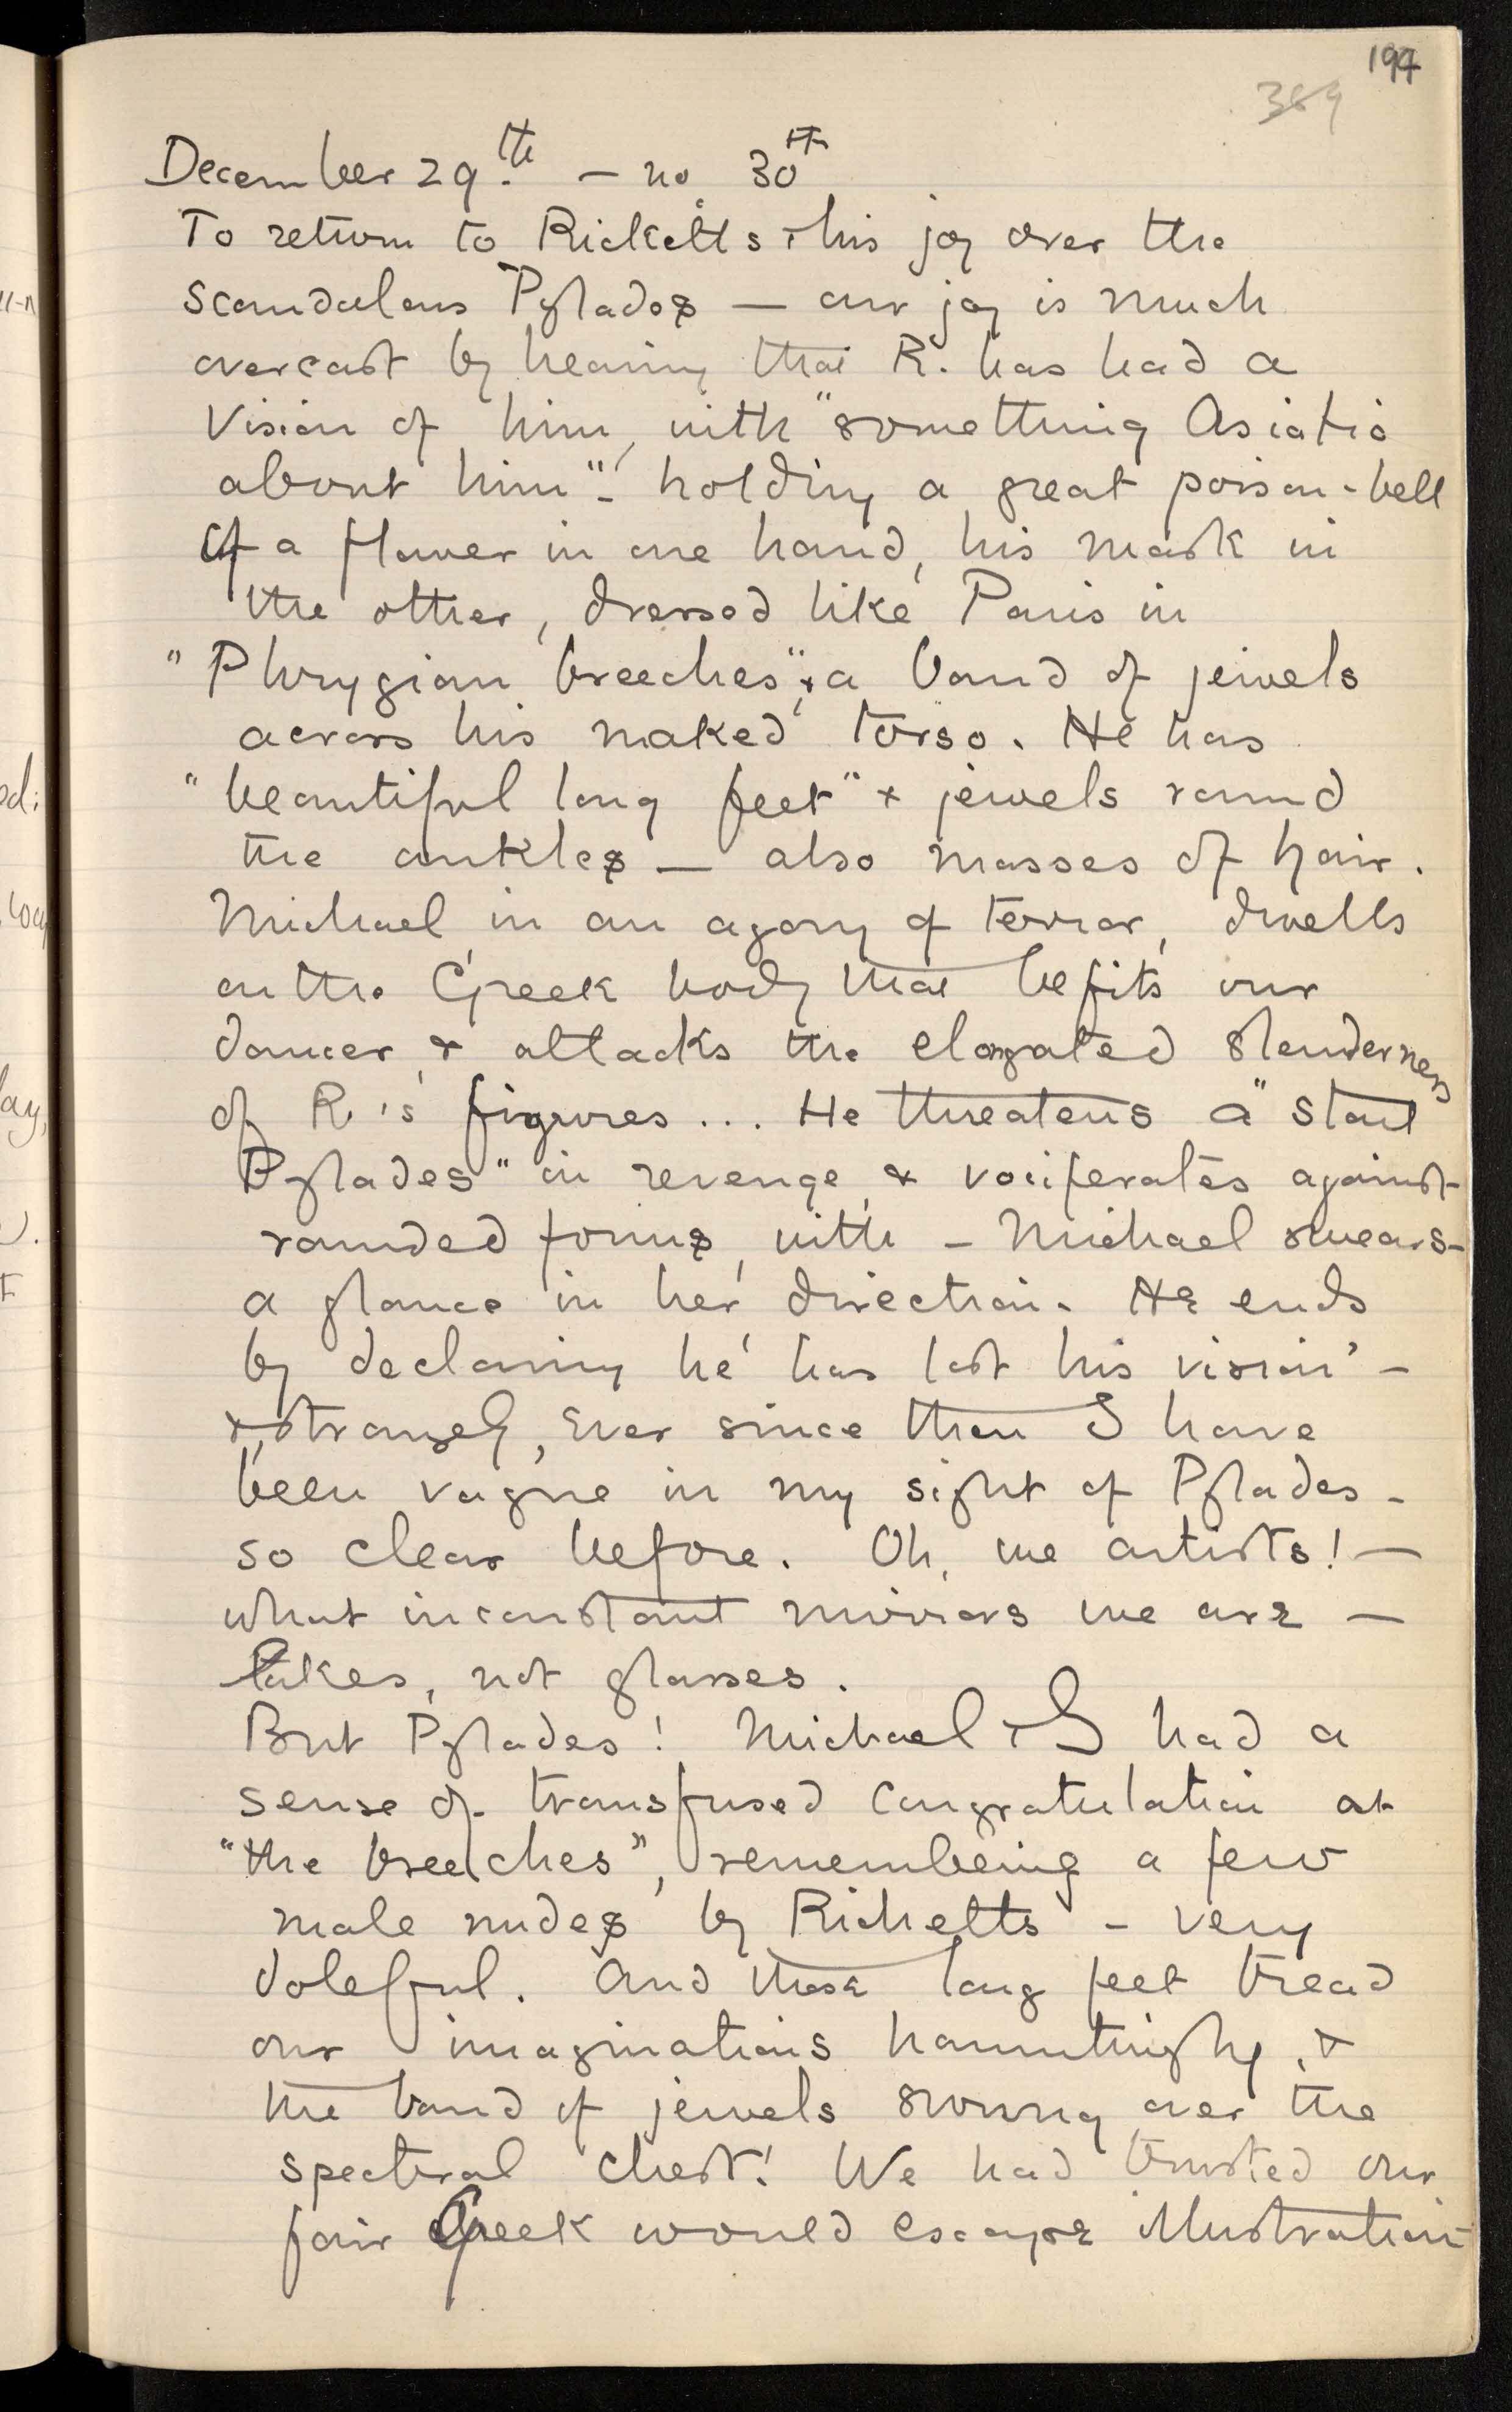 194
389
December 29.th – no 30th
To return to Ricketts & his joy over the
scandalous Pylades — our joy is much
overcast by hearing that R. has had a
Vision of him, with "something Asiatic
about him" – holding a great poison-bell
of a flower in one hand, his mask in
the other, dressed like Paris in
"Phrygian breeches", & a band of jewels
across his naked torso. He has
"beautiful long feet" & jewels round
the ankles — also masses of hair.
Michael, in an agony of terror, dwells
on the Greek body that befits our
dancer & attacks the elongated slenderness
of R's figures... He threatens a "stout
Pylades" in revenge, & vociferates against
rounded forms, with – Michael swears –
a glance in her direction. He ends
by declaring he has lost his vision –
& strangely, ever since then I have
been vague in my sight of Pylades –
so clear before. Oh, we artists! —
what inconstant mirrors we are —
Lakes, not glasses.
But Pylades! Michael & I had a
sense of transfused congratulation at
"the breeches", remembering a few
male nudes by Ricketts – very
doleful. And those long feet tread
our imaginations hauntingly, &
the band of jewels swung over the
spectral chest! We had trusted our
fair Greek would escape illustration